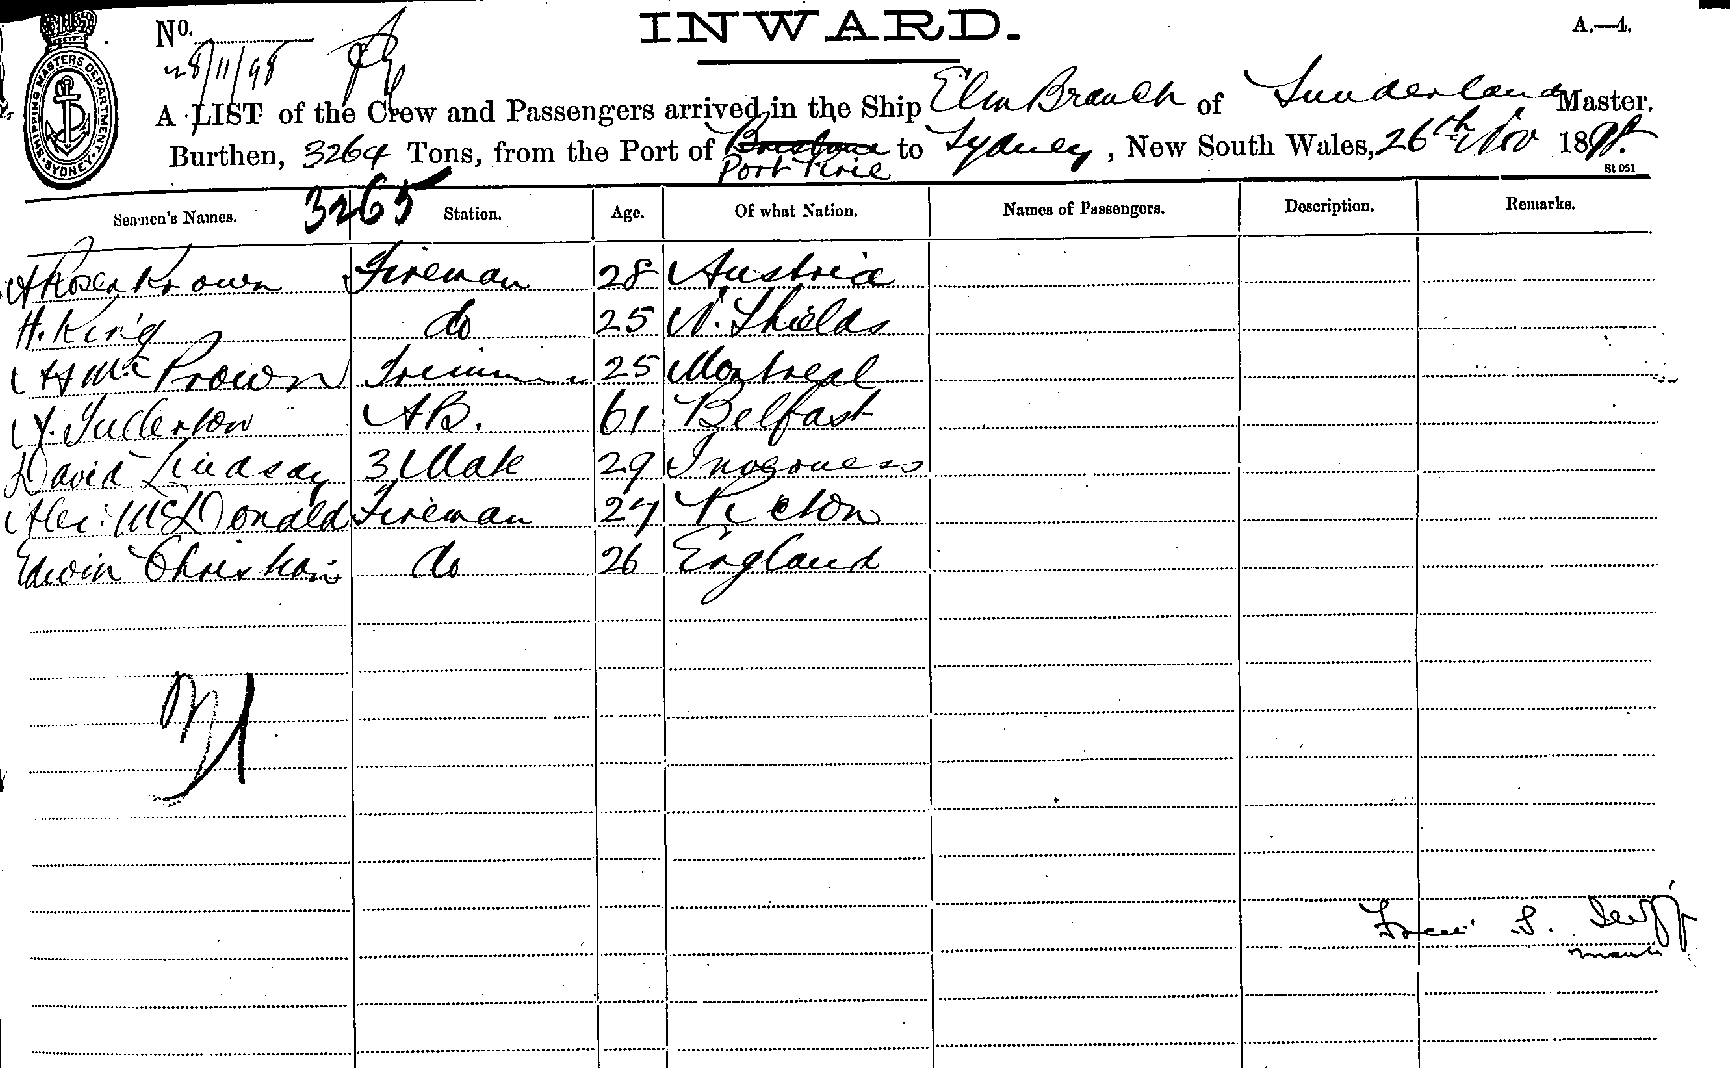 INWARD.
A.—4.
No.
28/11/98
SHIPPING MASTERS DEPARTMENT SYDNEY
A LIST of the Crew and Passengers arrived in the Ship Elm Branch of Sunderland Master,
Burthen, 3264 Tons, from the Port of Brisbane to Sydney, New South Wales, 26th Nov 1898.
Port Pirie
St 051
3265
Seamen's Names. Station. Age. Of what Nation. Names of Passengers. Description. Remarks.
Fireman 28 Austria
H. King do 25 N. Shields
H Mc Prown Trimmer 25 Montreal
Fullerton AB. 61 Belfast
David Lindsay 3 Mate 29
Alec. McDonald Fireman 27 Picton
Edwin Christian do 26 England
S.